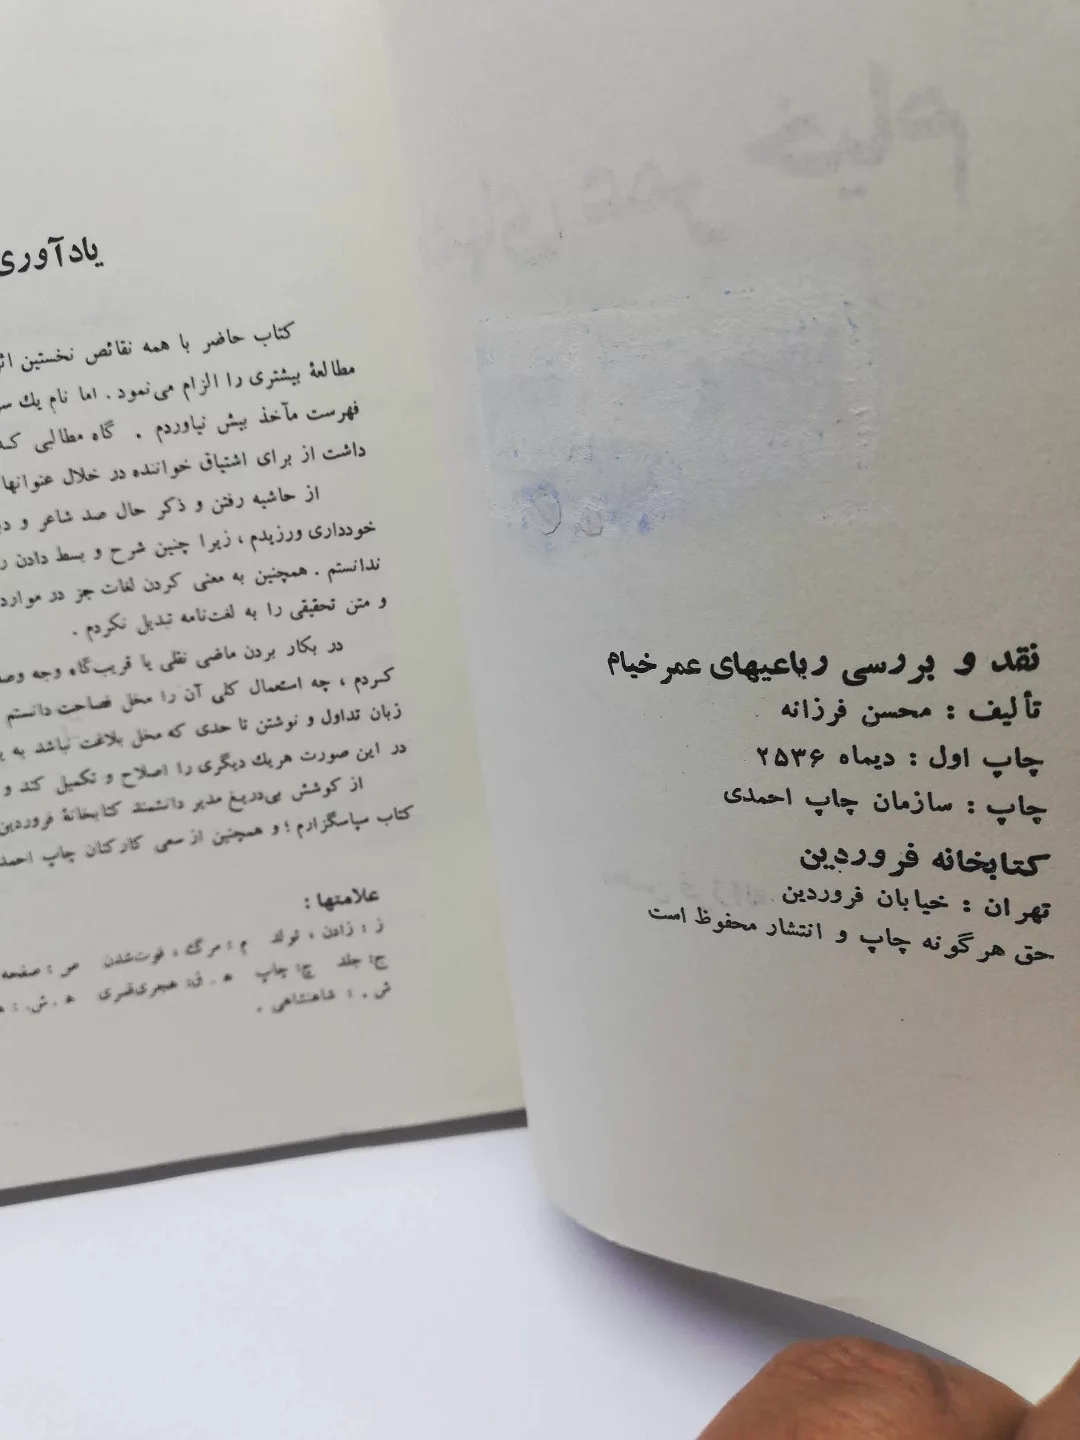 نقد و بررسی رباعیهای عمر خیام
تألیف : محسن فرزانه
چاپ اول : دیماه ۲۵۳۶
چاپ : سازمان چاپ احمدی
کتابخانه فروردین
تهران : خیابان فروردین
حق هرگونه چاپ و انتشار محفوظ است
یادآوری
کتاب حاضر با همه نقائص نخستین
مطالعهٔ بیشتری را الزام می‌نمود . اما نام یك
فهرست مآخذ بیش نیاوردم . گاه مطالبی که
داشت از برای اشتیاق خواننده در خلال عنوانها
از حاشیه رفتن و ذکر حال صد شاعر و
خودداری ورزیدم ، زیرا چنین شرح و بسط دادن
ندانستم . همچنین به معنی کردن لغات جز در موارد
و متن تحقیقی را به لغت‌نامه تبدیل نکردم .
در بکار بردن ماضی نقلی یا قریب‌گاه وجه
کردم ، چه استعمال کلی آن را مخل فصاحت دانستم
زبان تداول و نوشتن تا حدی که مخل بلاغت نباشد به
در این صورت هریك دیگری را اصلاح و تکمیل کند و
از کوشش بی‌دریغ مدیر دانشمند کتابخانهٔ فروردین
کتاب سپاسگزارم ؛ و همچنین از سعی کارکنان چاپ
علامتها :
ز : زادن ، تولد م : مرگ ، فوت‌شدن ص : صفحه
ج: جلد چ: چاپ ه . ق: هجری‌قمری ه . ش. :
ش . : شاهنشاهی .